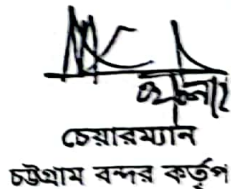 চেয়ারম্যান
চট্টগ্রাম বন্দর কর্তৃপ